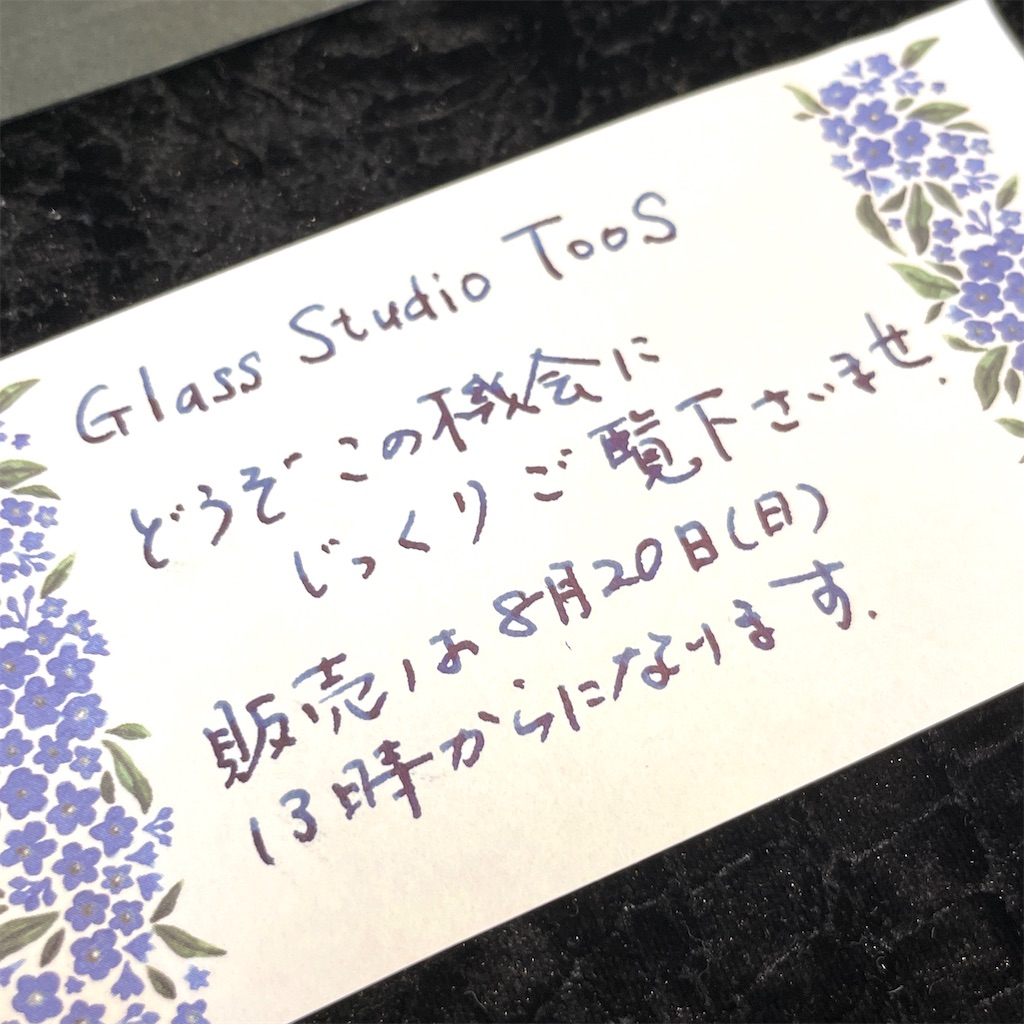 Glass Studio TooS
どうぞこの機会に
じっくりご覧下さいませ.
販売は8月20日(日)
13時からになります.